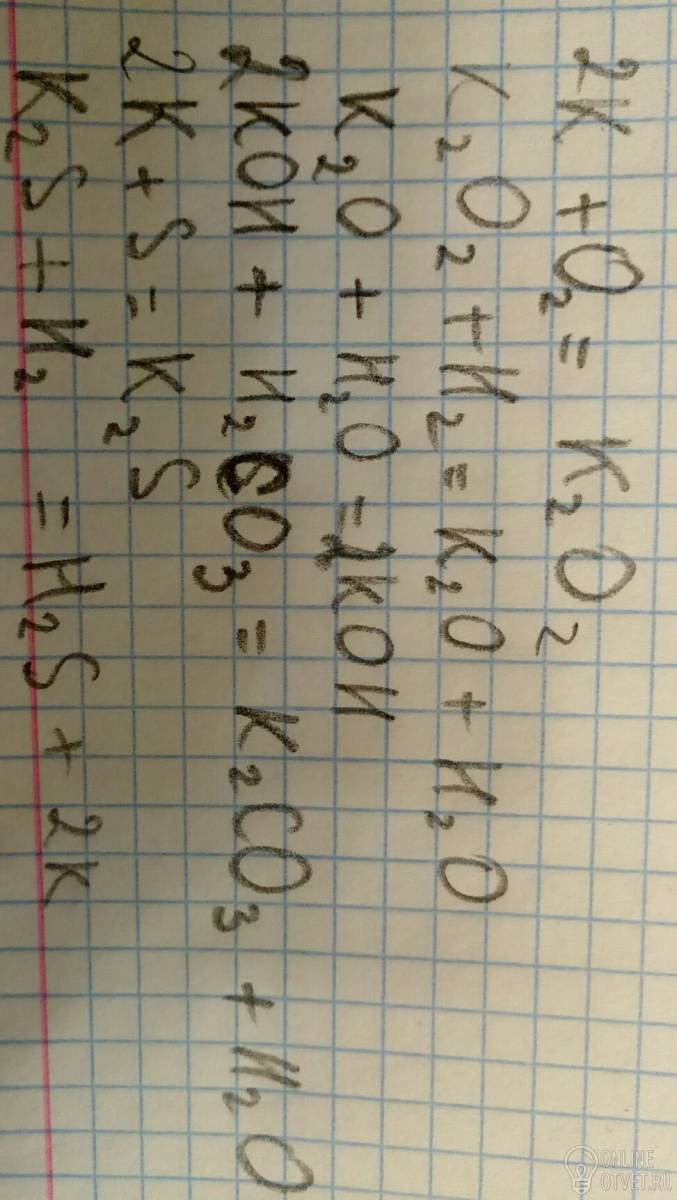 2K + O₂ = K₂O₂
K₂O₂ + H₂ = K₂O + H₂O
K₂O + H₂O = 2KOH
2KOH + H₂CO₃ = K₂CO₃ + H₂O
2K + S = K₂S
K₂S + H₂ = H₂S + 2K
ONLINE
OTVET.RU